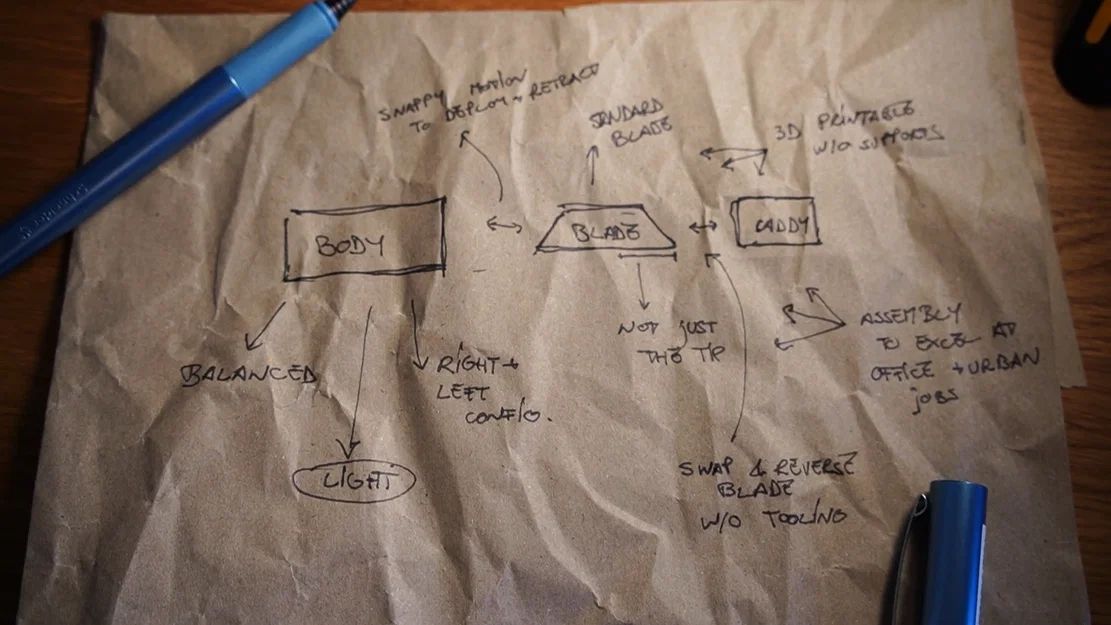 SNAPPY MOTION
TO DEPLOY + RETRACT
STANDARD
BLADE
3D PRINTABLE
W/O SUPPORTS
BODY
BLADE
CADDY
NOT JUST
THE TIP
ASSEMBLY
TO EXCEL AT
OFFICE + URBAN
JOBS
BALANCED
RIGHT +
LEFT
CONFIG.
LIGHT
SWAP & REVERSE
BLADE
W/O TOOLING